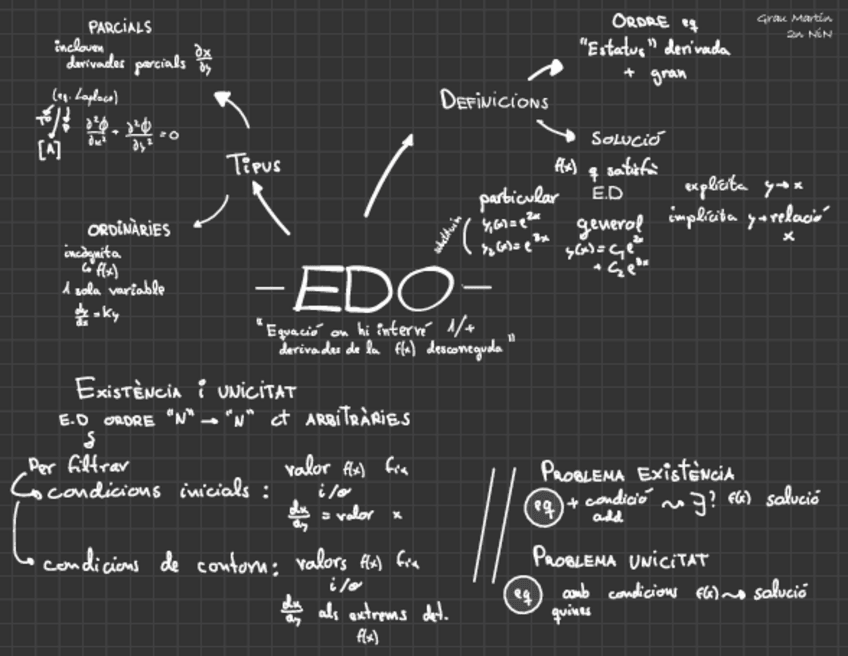 Grau Martín
2n NiN
PARCIALS
inclouen
derivades parcials ∂x/∂y
(eq. Laplace)
[A]
∂²ϕ/∂x² + ∂²ϕ/∂y² = 0
TIPUS
ORDINÀRIES
incògnita
↳ f(x)
1 sola variable
dy/dx = Ky
DEFINICIONS
ORDRE eq
"Estatus" derivada
+ gran
SOLUCIÓ
f(x) q satisfà
E.D
particular
y₁(x) = e²ˣ
y₂(x) = e³ˣ
general
y(x) = C₁e²ˣ
+ C₂e³ˣ
explícita y → x
implícita y → relació
x
— EDO —
"Equació on hi intervé 1/+
derivades de la f(x) desconeguda"
EXISTÈNCIA i UNICITAT
E.D ORDRE "N" → "N" ct ARBITRÀRIES
Per filtrar
condicions inicials: valor f(x)
i/o
dx/dy = valor x
condicions de contorn: valors f(x)
i/o
dx/dy als extrems det.
f(x)
PROBLEMA EXISTÈNCIA
eq + condició ⇝ ∃? f(x) solució
add
PROBLEMA UNICITAT
eq amb condicions f(x) ⇝ solució
quines